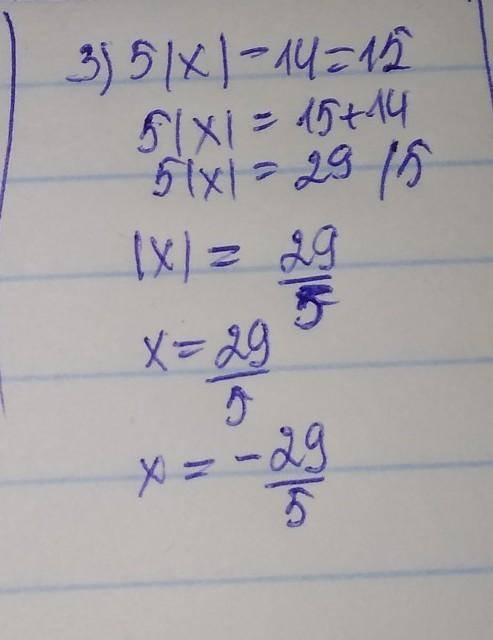 3) 5|x| - 14 = 15
5|x| = 15 + 14
5|x| = 29 / 5
|x| = 29/5
x = 29/5
x = - 29/5